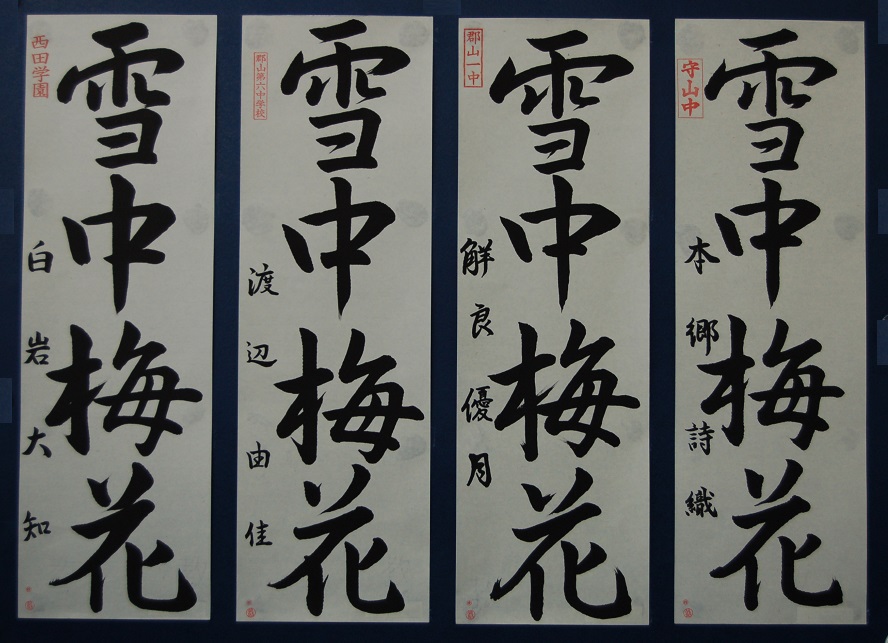 雪中梅花
守山中
本郷詩織
雪中梅花
郡山一中
解良優月
雪中梅花
郡山第六中学校
渡辺由佳
雪中梅花
西田学園
白岩大知